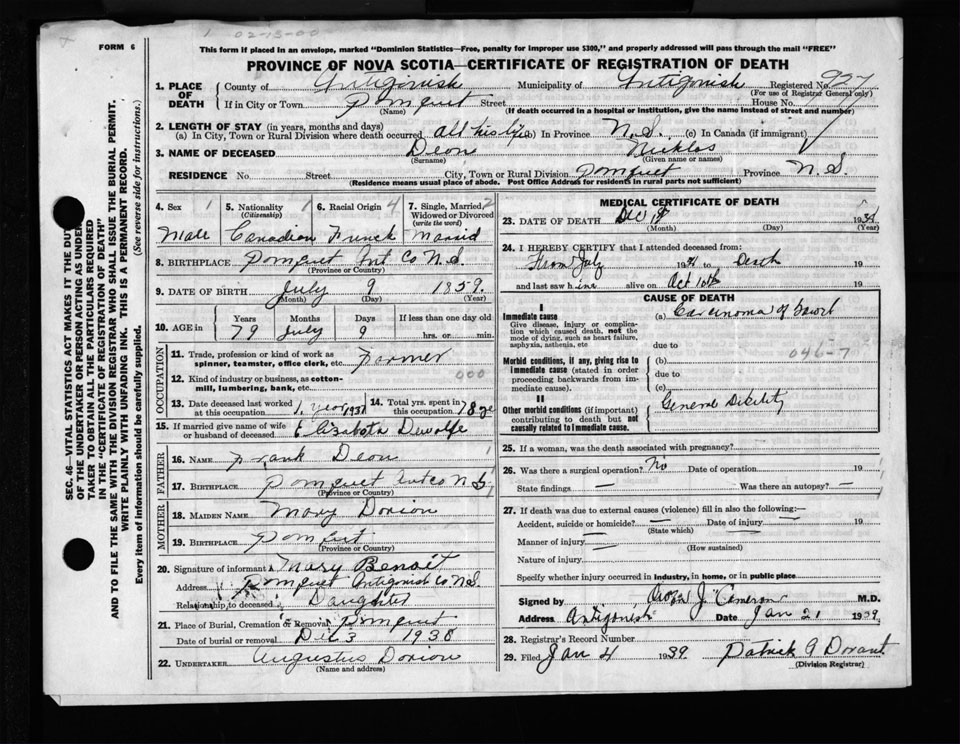 02-15-00
FORM 6
This form if placed in an envelope, marked "Dominion Statistics—Free, penalty for improper use $300," and properly addressed will pass through the mail "FREE"
PROVINCE OF NOVA SCOTIA—CERTIFICATE OF REGISTRATION OF DEATH
SEC. 46—VITAL STATISTICS ACT MAKES IT THE DUTY
OF THE UNDERTAKER OR PERSON ACTING AS UNDER-
TAKER TO OBTAIN ALL THE PARTICULARS REQUIRED
IN THE "CERTIFICATE OF REGISTRATION OF DEATH"
AND TO FILE THE SAME WITH THE DIVISION REGISTRAR WHO SHALL ISSUE THE BURIAL PERMIT.
WRITE PLAINLY WITH UNFADING INK. THIS IS A PERMANENT RECORD.
Every item of information should be carefully supplied. (See reverse side for instructions.)
1. PLACE OF DEATH
County of Antigonish Municipality of Antigonish Registered No. 927
(For use of Registrar General only)
If in City or Town Pomquet Street House No.
(Name) (If death occurred in a hospital or institution, give the name instead of street and number)
2. LENGTH OF STAY (in years, months and days)
(a) In City, Town or Rural Division where death occurred All his life (b) In Province N.S. (c) In Canada (if immigrant)
3. NAME OF DECEASED Deon Nicklos
(Surname) (Given name or names)
RESIDENCE No. Street City, Town or Rural Division Pomquet Province N.S.
(Residence means usual place of abode. Post Office Address for residents in rural parts not sufficient)
4. Sex 1 5. Nationality 1 6. Racial Origin 4 7. Single, Married, 2
(Citizenship) Widowed or Divorced
(write the word)
Male Canadian French Married
8. BIRTHPLACE Pomquet Ant Co N.S.
(Province or Country)
9. DATE OF BIRTH July 9 1859
(Month) (Day) (Year)
10. AGE in Years Months Days If less than one day old
79 July 9 hrs. or min.
OCCUPATION
11. Trade, profession or kind of work as
spinner, teamster, office clerk, etc. Farmer
12. Kind of industry or business, as cotton-
mill, lumbering, bank, etc. 000
13. Date deceased last worked 14. Total yrs. spent in
at this occupation 1 year 1937 this occupation 78 ye
15. If married give name of wife
or husband of deceased Elizabeta Dewolfe
FATHER
16. NAME Frank Deon
17. BIRTHPLACE Pomquet Ant co N S
(Province or Country)
MOTHER
18. MAIDEN NAME Mary Dorion
19. BIRTHPLACE Pomquet
(Province or Country)
20. Signature of informant Mary Benoit
Address Pomquet Antigonish Co N.S.
Relationship to deceased Daughter
21. Place of Burial, Cremation or Removal Pomquet
Date of burial or removal Dec 3 1938
22. UNDERTAKER Augustus Dorion
(Name and address)
MEDICAL CERTIFICATE OF DEATH
23. DATE OF DEATH Dec 1st
(Month) (Day) (Year)
24. I HEREBY CERTIFY that I attended deceased from:
From July to Death 19
and last saw h im alive on Oct 10th 19
CAUSE OF DEATH
I
Immediate cause
Give disease, injury or complica-
tion which caused death, not the
mode of dying, such as heart failure,
asphyxia, asthenia, etc
(a) Carcinoma of
due to
046-7
Morbid conditions, if any, giving rise to
immediate cause (stated in order
proceeding backwards from im-
mediate cause).
(b)
due to
(c)
II
Other morbid conditions (if important)
contributing to death but not
causally related to immediate cause.
General Debility
25. If a woman, was the death associated with pregnancy?
26. Was there a surgical operation? No Date of operation 19
State findings — Was there an autopsy? —
27. If death was due to external causes (violence) fill in also the following:—
Accident, suicide or homicide? — Date of injury — 19
(State which)
Manner of injury —
(How sustained)
Nature of injury —
Specify whether injury occurred in industry, in home, or in public place
Signed by J Cameron M.D.
Address Antigonish Date Jan 21 1939
28. Registrar's Record Number
29. Filed Jan 4 1939 Patrick G Dorant
(Division Registrar)